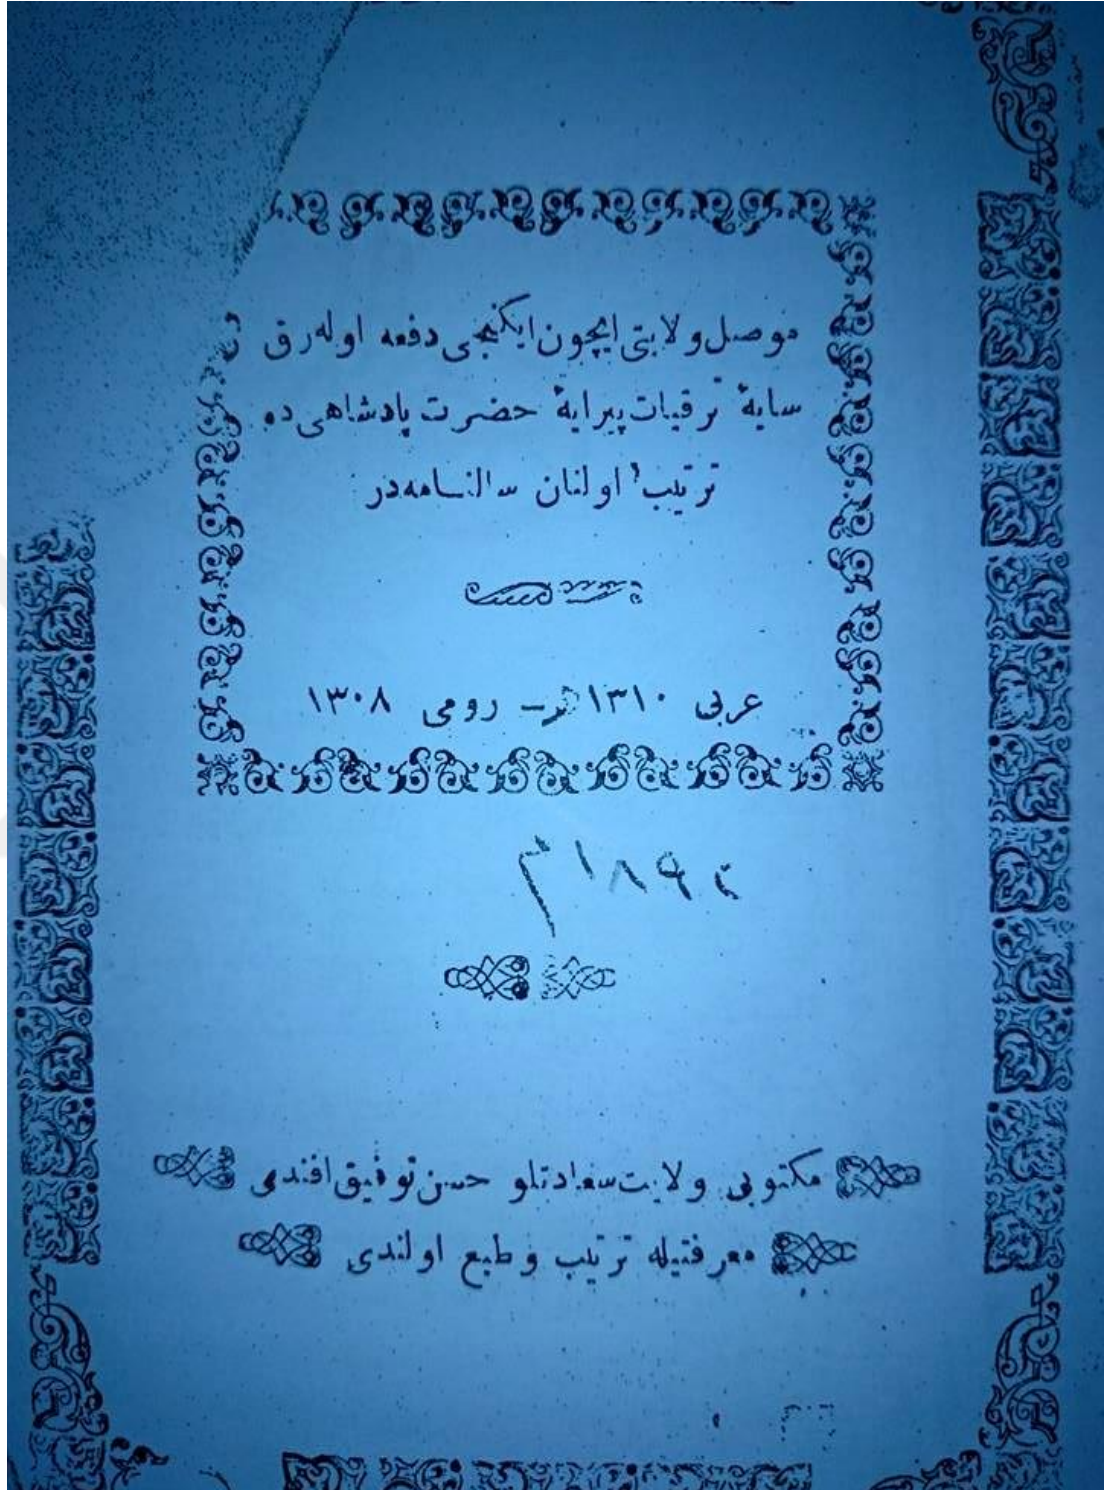 موصل ولایتی ایچون ایکنجی دفعه اوله رق
سایهٔ ترقیات پیرایهٔ حضرت پادشاهی ده
ترتیب اولنان سالنامه در
عربی ١٣١٠ — رومی ١٣٠٨
مکتوبی ولایت سعادتلو حسن توفیق افندی
معرفتیله ترتیب و طبع اولندی